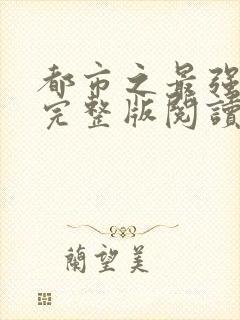 都市之最强
完整版閱讀
蘭望美